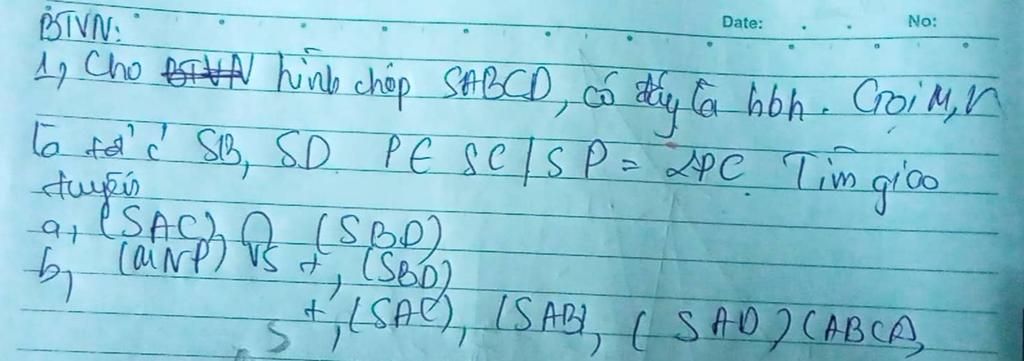 Date: No:
BTVN:
1, Cho BTVN hình chóp SABCD, có đáy là hbh. Gọi M, N
là tđ' c' SB, SD P ∈ SC / SP = 2PC. Tìm giao
tuyến
a, (SAC) ∩ (SBD)
b, (MNP) vs +, (SBD)
+, (SAC), (SAB), (SAD) (ABCD),
S